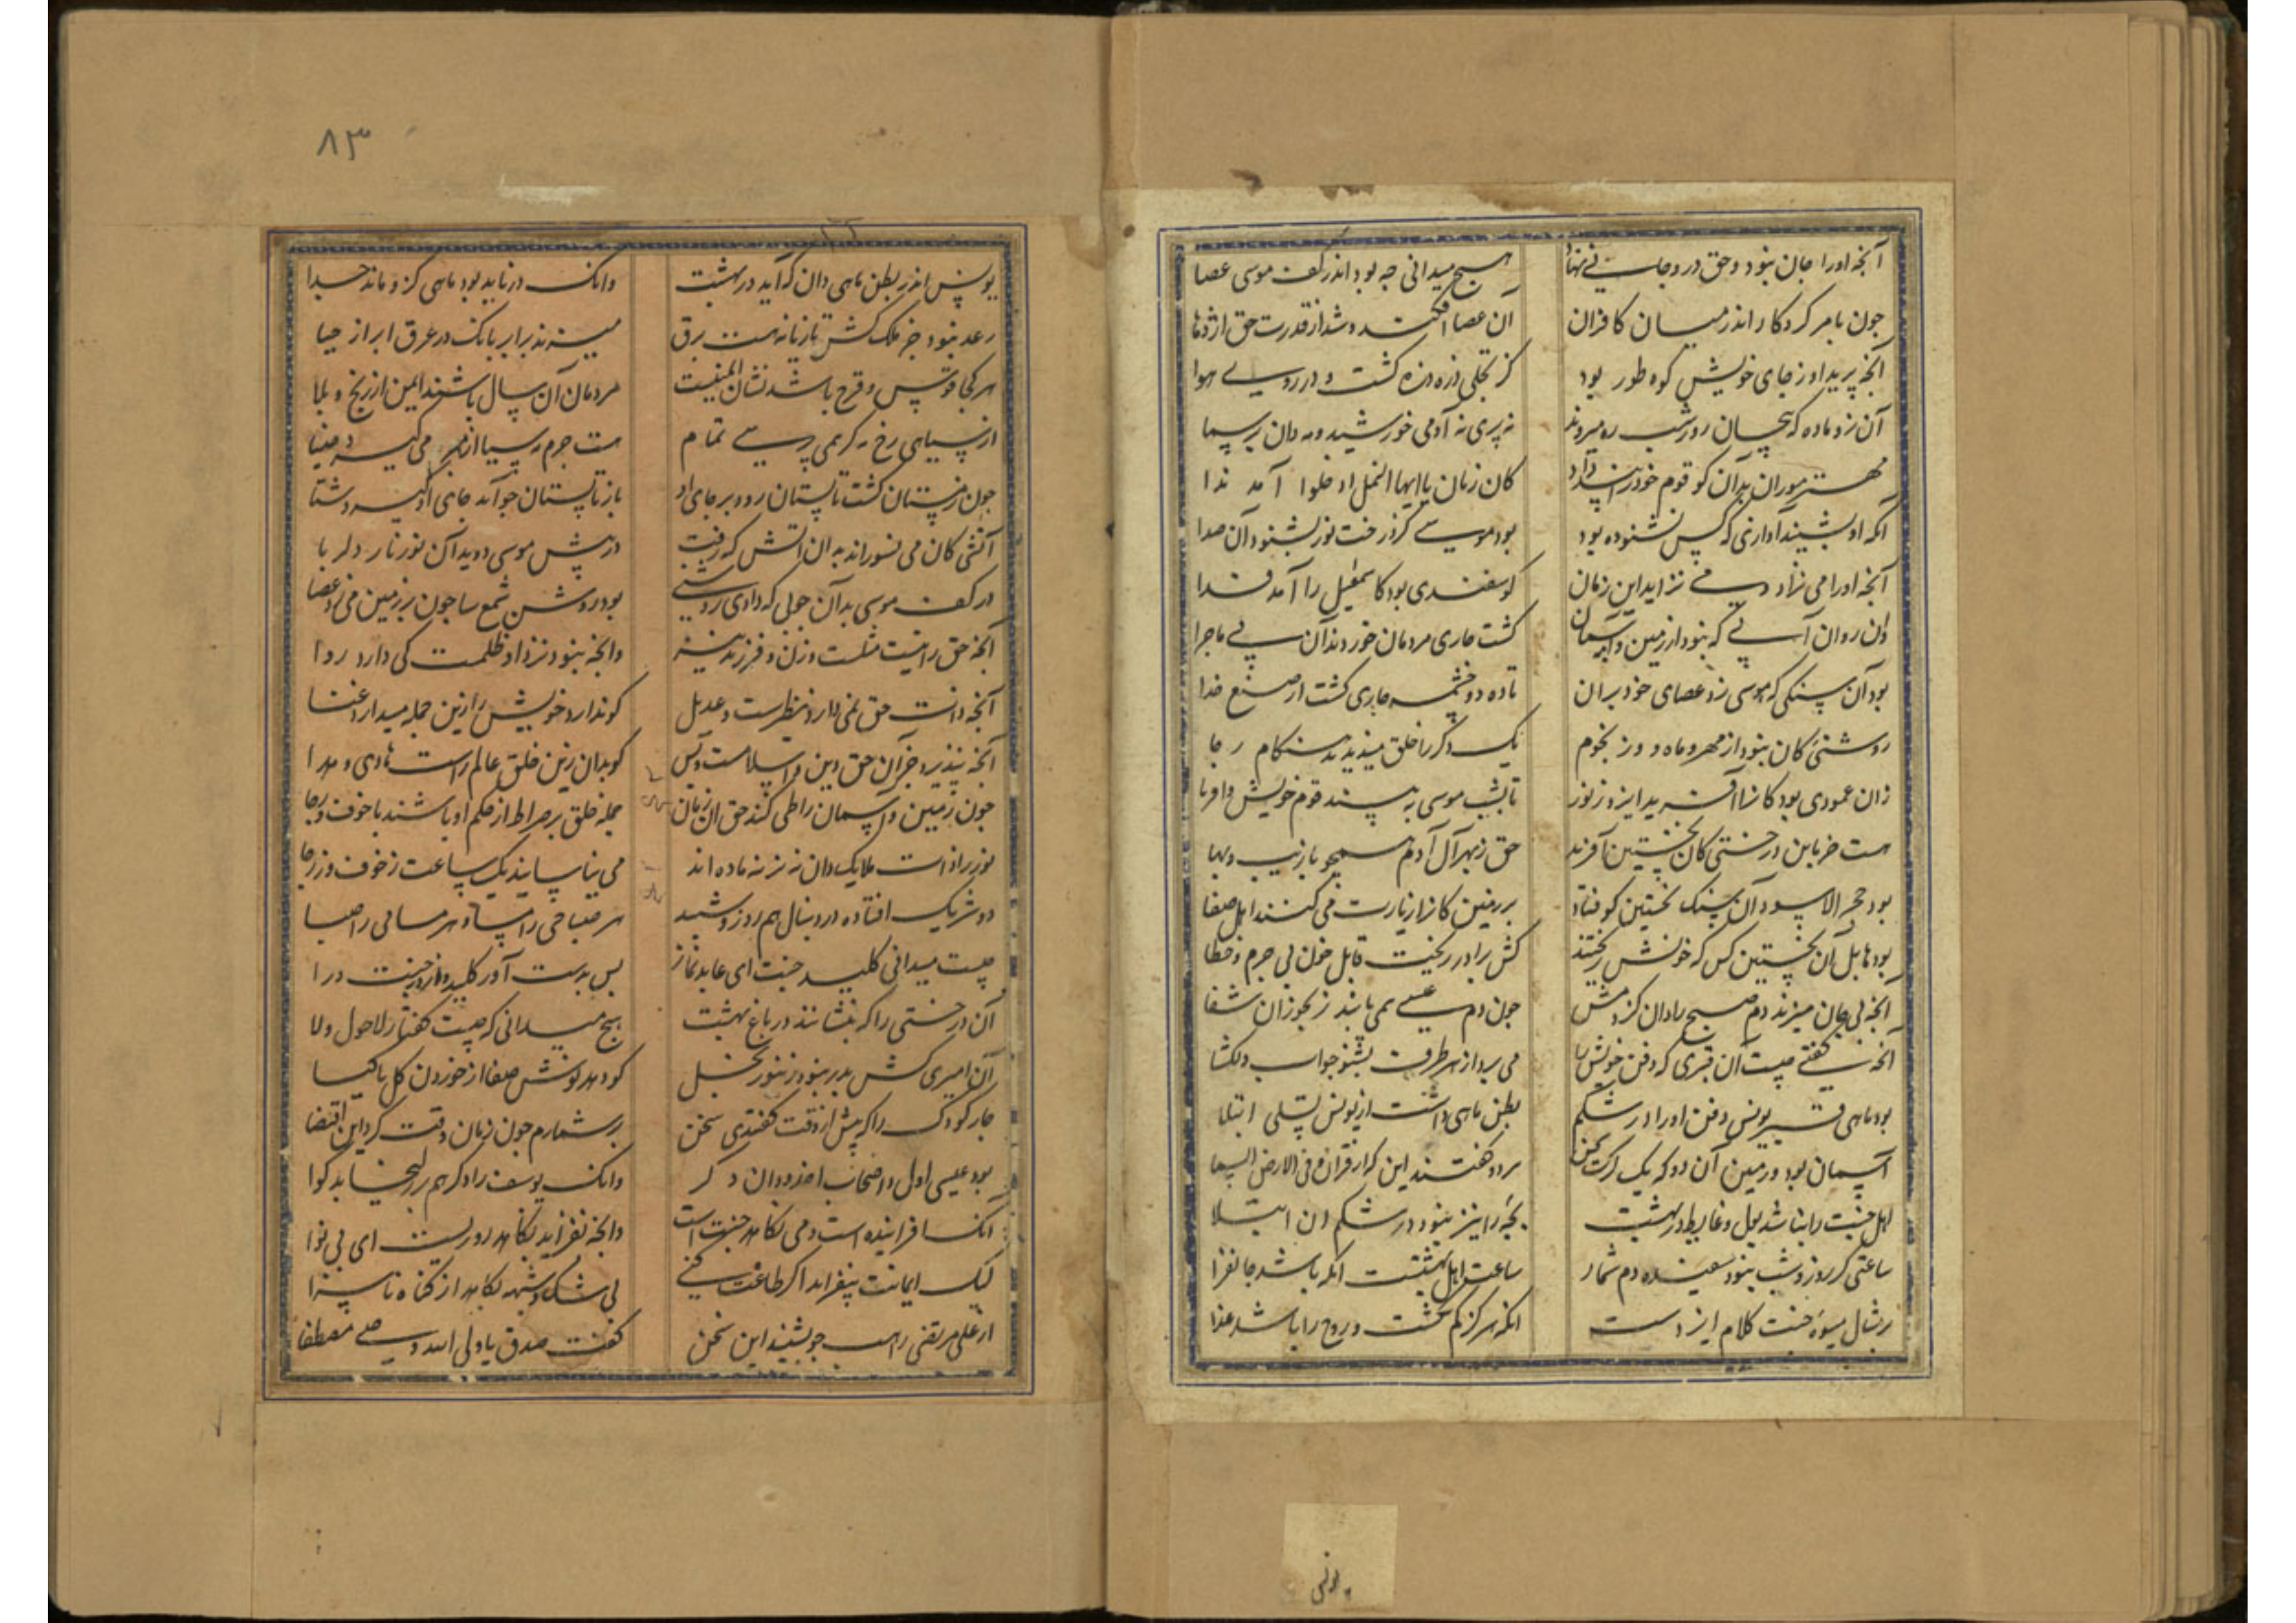 آنجه اورا جان نبود و حق درو جان
هیچ میدانی جه بود اندر کف موسی عصا
جون بامر کردکار اندر میان کافران
آن عصا افکند و شد از قدرت حق اژدها
آنجه پرید او ز جای خویش کوه طور بود
کز تجلی ذره ذره کشت و در روی هوا
آن نر و ماده که بیجان روز و شب ره میروند
نه پری نه آدمی خورشید و مه دان بر سما
مهتر موران بدان کو قوم خود را
کان زمان یا ایها النمل ادخلوا آمد ندا
آنکه او بشنید آوازی که کس نشنوده بود
بود موسی کز درخت نور بشنود آن صدا
آنجه اورا می نزاد و می نزاید این زمان
کوسفندی بود کاسمعیل را آمد فدا
دان روان آبی که نبود از زمین و آسمان
کشت جاری مردمان خوردند آن بی ماجرا
بود آن سنکی که موسی زد عصای خود بران
تا ده دو چشمه جاری کشت از صنع خدا
روشنئ کان نبود از مهر و ماه و وز نجوم
یک دکر را خلق میدیدند هنکام رجا
زان عمودی بود کانرا آفرید ایزد ز نور
تا بشب موسی به بیند قوم خویش و اقربا
هست خرمابن درختی کان نخستین آفرید
حق ز بهر آل آدم همجو با زیب و بها
بود حجر الاسود آن سنک نخستین کو فتاد
بر زمین کانرا زیارت می کنند اهل صفا
بود هابیل آن نخستین کس که خونش ریختند
کش برادر ریخت قابل خون بی جرم و خطا
آنجه بی جان میزند دم صبح را دان کز دمش
جون دم عیسی همی یابند رنجوران شفا
آنکه کفتی جیست آن قبری که دفن خویش را
می برد از هر طرف بشنو جواب دلکشا
بود ماهی قبر یونس دفن او را در شکم
بطن ماهی داشت از یونس تسلی ابتلا
آسمان بود و زمین آن دو که یک
هر دو کفتند این که از قران و فی الارض السما
اهل جنت را نباشد بول و غایط در بهشت
بجه را نیز نبود در شکم دان ابتلا
ساعتی کز روز و شب نبود سفیده دم شمار
ساعت اهل بهشتست آنکه باشد جانفزا
بر مثال میوۀ جنت کلام ایزدست
آنکه هرکز کم نکشت و روح را باشد غذا
بونس
۸۳
یونس اندر بطن ماهی دان که آید در بهشت
وانک درناید بود ماهی کزو ماند جدا
رعد نبود جز ملک کش تازیانه هست برق
میزند بر ابر بانک در عرق ابر از حیا
هر کجا قوس و قزح باشد نشان ایمنیست
مردمان آن سال باشند ایمن از رنج و بلا
از سیاهی رخ مه کر همی پرسی تمام
هست جرم مه سیا از مهر می کیرد ضیا
جون زمستان کشت تابستان رود بر جای او
باز تابستان جو آمد جای او کیرد شتا
آتشی کان می نسوزاند بدان آتش که رفت
در پیش موسی و دید آن نور نار دلربا
در کف موسی بدان جوبی که دادی روشنی
بود روشن شمع سا جون بر زمین می زد عصا
آنجه حق را نیست مثلست و زن و فرزند نیز
وانجه نبود نزد او ظلمست کی دارد روا
آنجه دانست حق نمی دارد نظیرست و عدیل
کو ندارد خویش را زین جمله میدارد غنا
آنجه نپذیرد جز آن حق دین اسلامست و بس
کو بدان زین خلق عالم راست هادی و هدا
جون زمین و آسمان را طی کند حق آن زمان
جمله خلق بر صراط از حکم او باشند با خوف و رجا
نور یزدانست ملایک دان نه نر نه ماده اند
می نیاسایند یک ساعت ز خوف وز رجا
دو شریک افتاده در دنبال هم روز و شبند
هر صباحی را مسا و هر مسائی را صبا
جیست میدانی کلید جنت ای عابد نماز
بس بدست آور کلید و از در جنت درا
آن درختی را که بنشانند در باغ بهشت
هیج میدانی که جیست کفتار لاحول ولا
آن امیری کش پدر نبود زنبور نحل
کو دهد نوشش صفا از خوردن کل یا کیا
جار کودک را که پیش از وقت کفتندی سخن
بر شمارم جون زمان وقت کرد این اقتضا
بود عیسی اول و اصحاب اخدود آن دکر
وانک یوسف را دکر هم بر زلیخا بد کوا
آنک افزاینده است و می نکاهد جنت است
وانجه نفزاید نکاهد روزیست ای بی نوا
لیک ایمانت بیفزاید اکر طاعت کنی
بی شک و شبهه بکاهد از کناه ناسزا
از علی مرتضی راهب جو بشنید این سخن
کفت صدق یا ولی الله وصی مصطفا